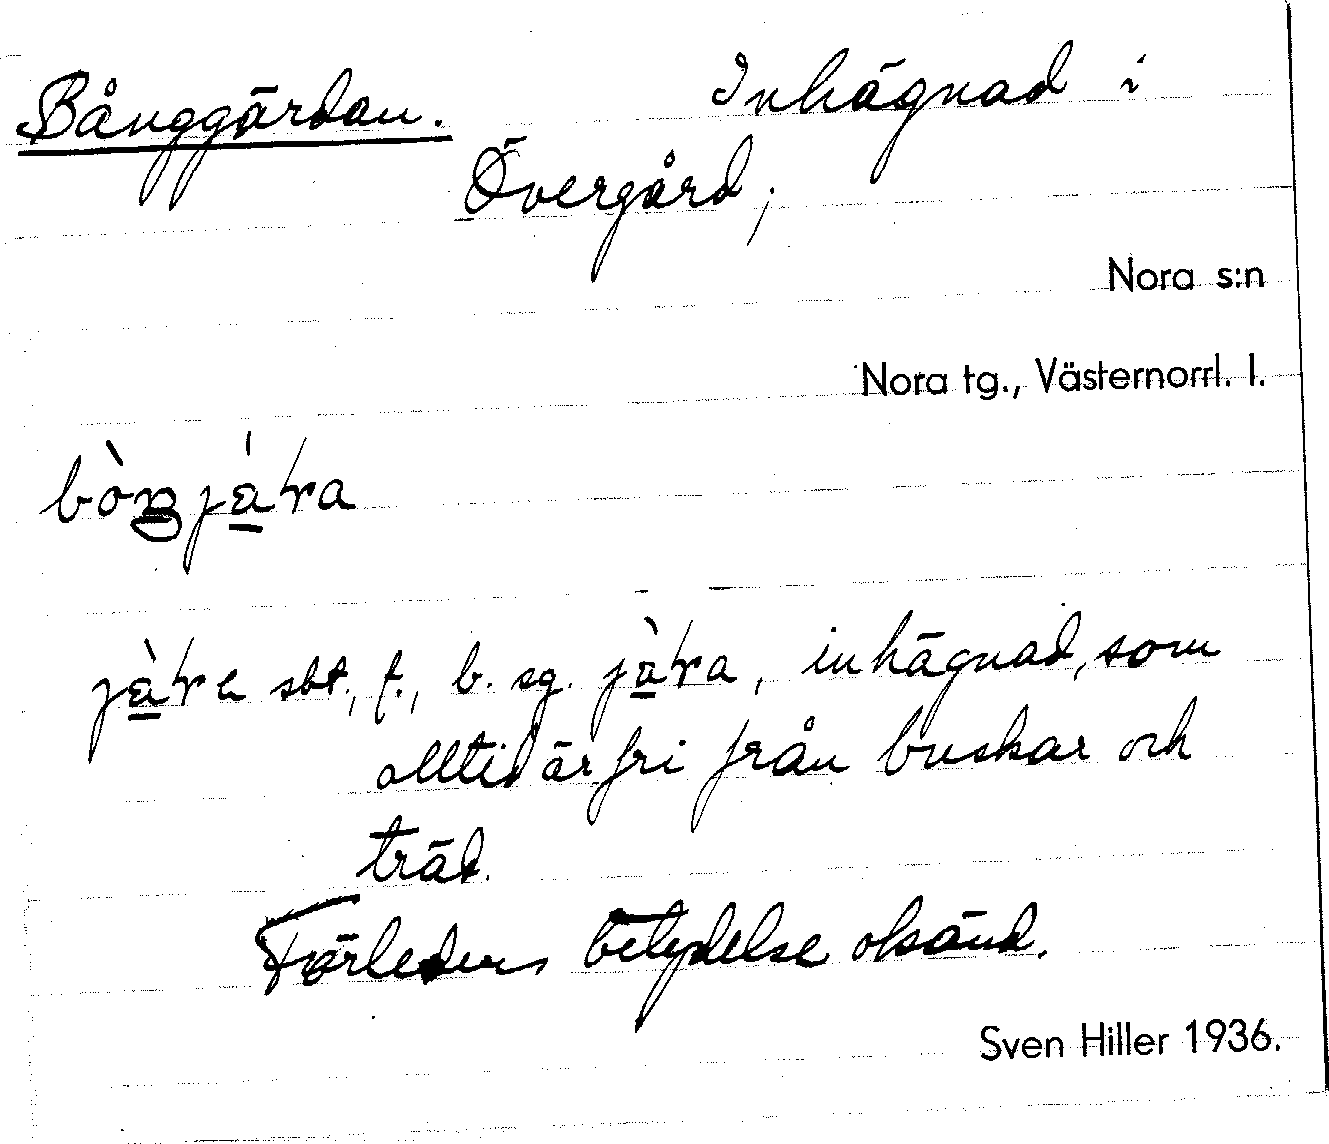 Bånggärdan. Inhägnad i
Övergård;
Nora s:n
Nora tg., Västernorrl. l.
bòŋjá̱ra
jà̱re sbt., f., b. sg. jà̱ra, inhägnad, som
alltid är fri från buskar och
träd.
Förledens betydelse okänd.
Sven Hiller 1936.